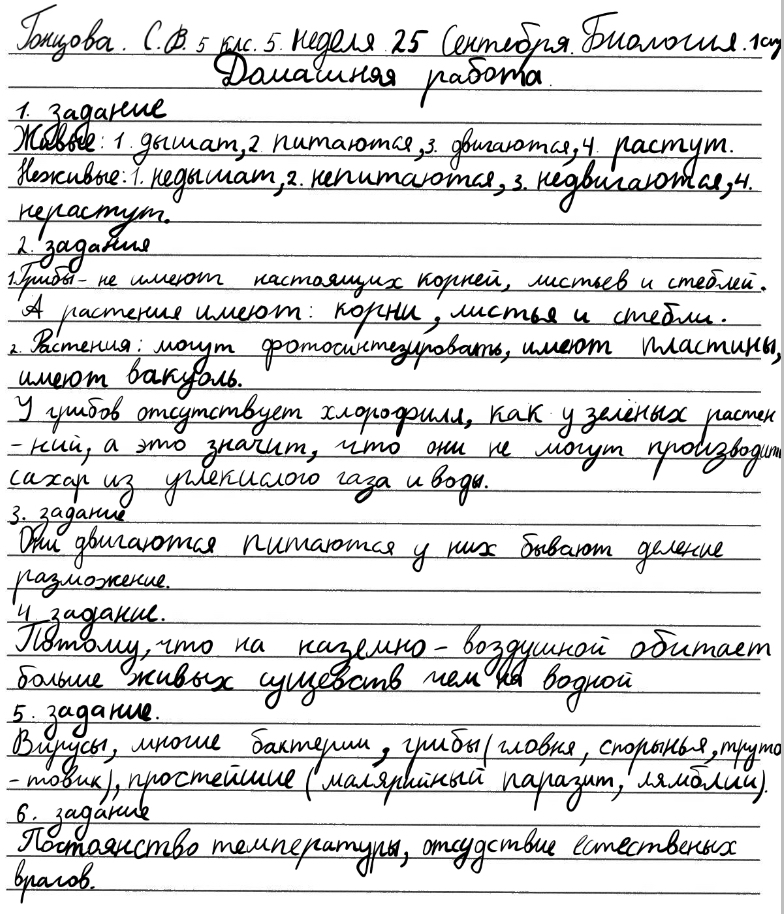 Гонцова. С.В. 5 клс. 5. неделя 25 Сентебря. Биология. 1 стр
Домашняя работа.
1. задание
Живые: 1. дышат, 2. питаются, 3. двигаются, 4. растут.
Неживые: 1. недышат, 2. непитаются, 3. недвигаются, 4.
нерастут.
2. задания
1. Грибы - не имеют настоящих корней, листьев и стеблей.
А растения имеют: корни, листья и стебли.
2. Растения: могут фотосинтезировать, имеют пластины,
имеют вакуоль.
У грибов отсутствует хлорофилл, как у зелёных растен
-ний, а это значит, что они не могут производить
сахар из углекислого газа и воды.
3. задание
Они двигаются питаются у них бывают деление
разможение.
4 задание.
Потому, что на наземно - воздушной обитает
больше живых существ чем на водной
5. задание.
Вирусы, многие бактерии, грибы (головня, спорынья, труто
-товик), простейшие (малярийный паразит, лямблии).
6. задание
Постоянство температуры, отсудствие естественых
врагов.